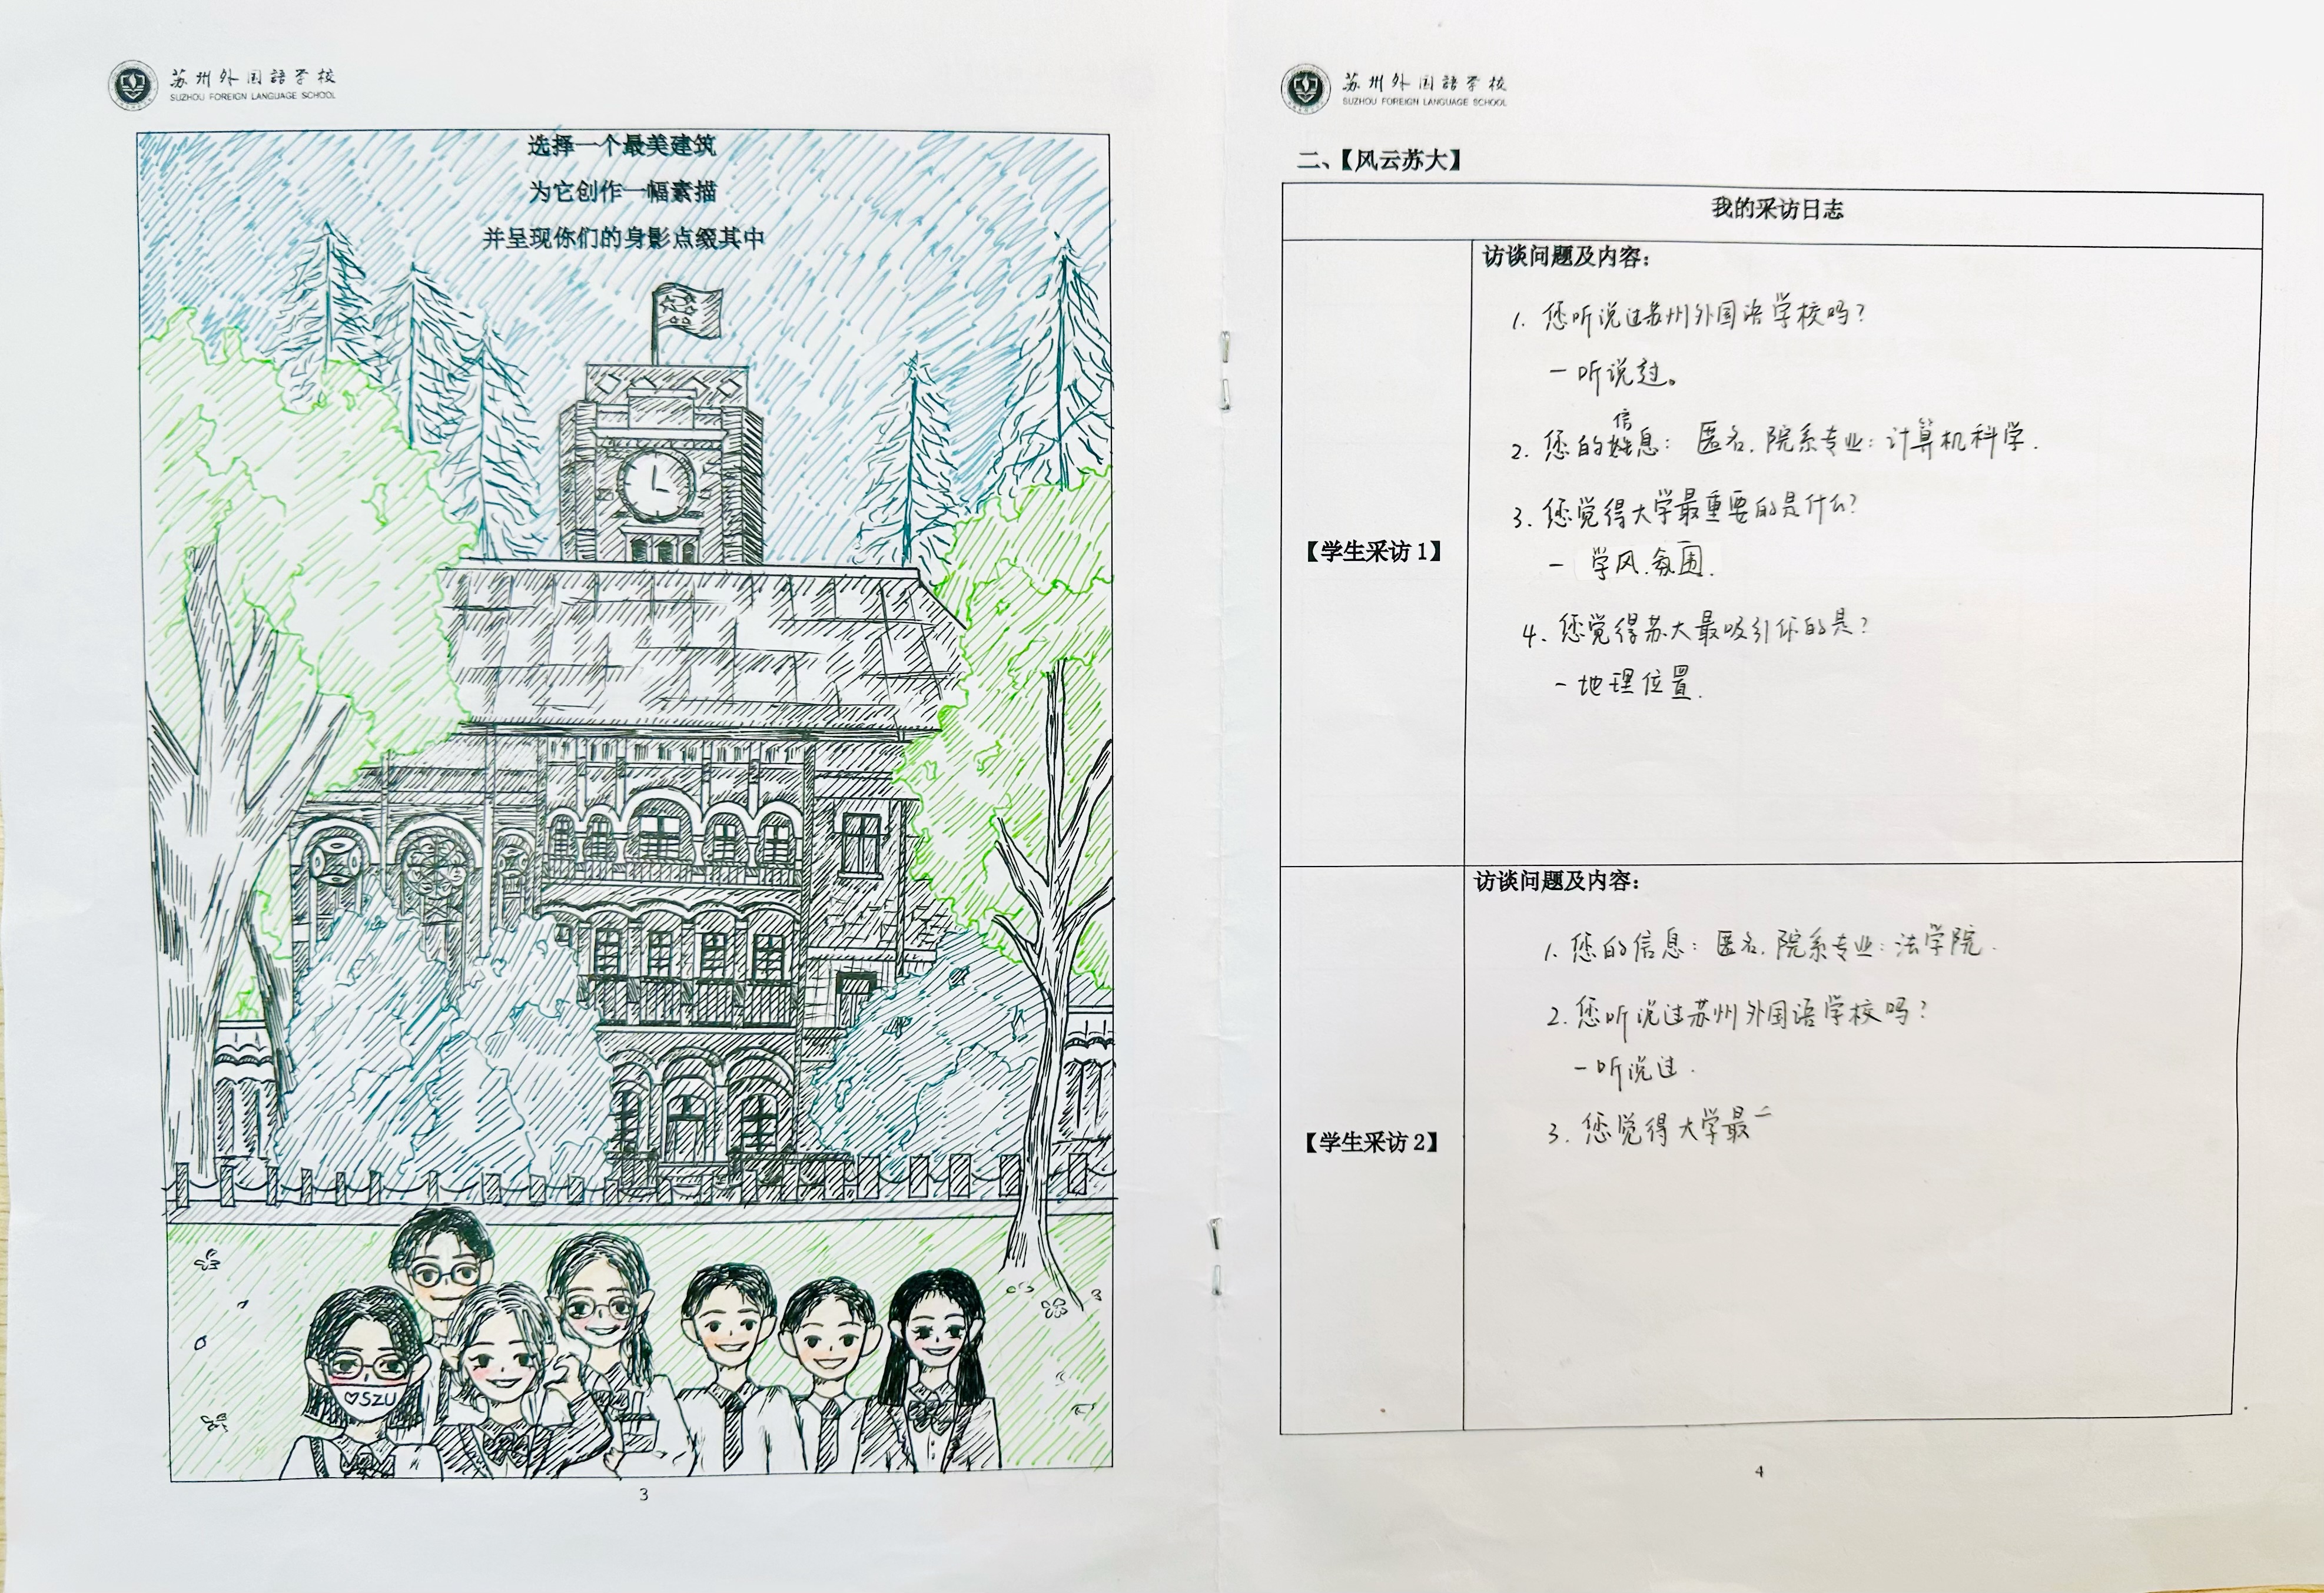 苏州外国語学校
SUZHOU FOREIGN LANGUAGE SCHOOL
选择一个最美建筑
为它创作一幅素描
并呈现你们的身影点缀其中
♡SZU
3
苏州外国語学校
SUZHOU FOREIGN LANGUAGE SCHOOL
二、【风云苏大】
我的采访日志
【学生采访1】
访谈问题及内容：
1. 您听说过苏州外国语学校吗？
－听说过。
2. 您的信息：匿名. 院系专业：计算机科学.
3. 您觉得大学最重要的是什么？
－学风.氛围.
4. 您觉得苏大最吸引你的是？
－地理位置.
【学生采访2】
访谈问题及内容：
1. 您的信息：匿名. 院系专业：法学院.
2. 您听说过苏州外国语学校吗？
－听说过.
3. 您觉得大学最
4